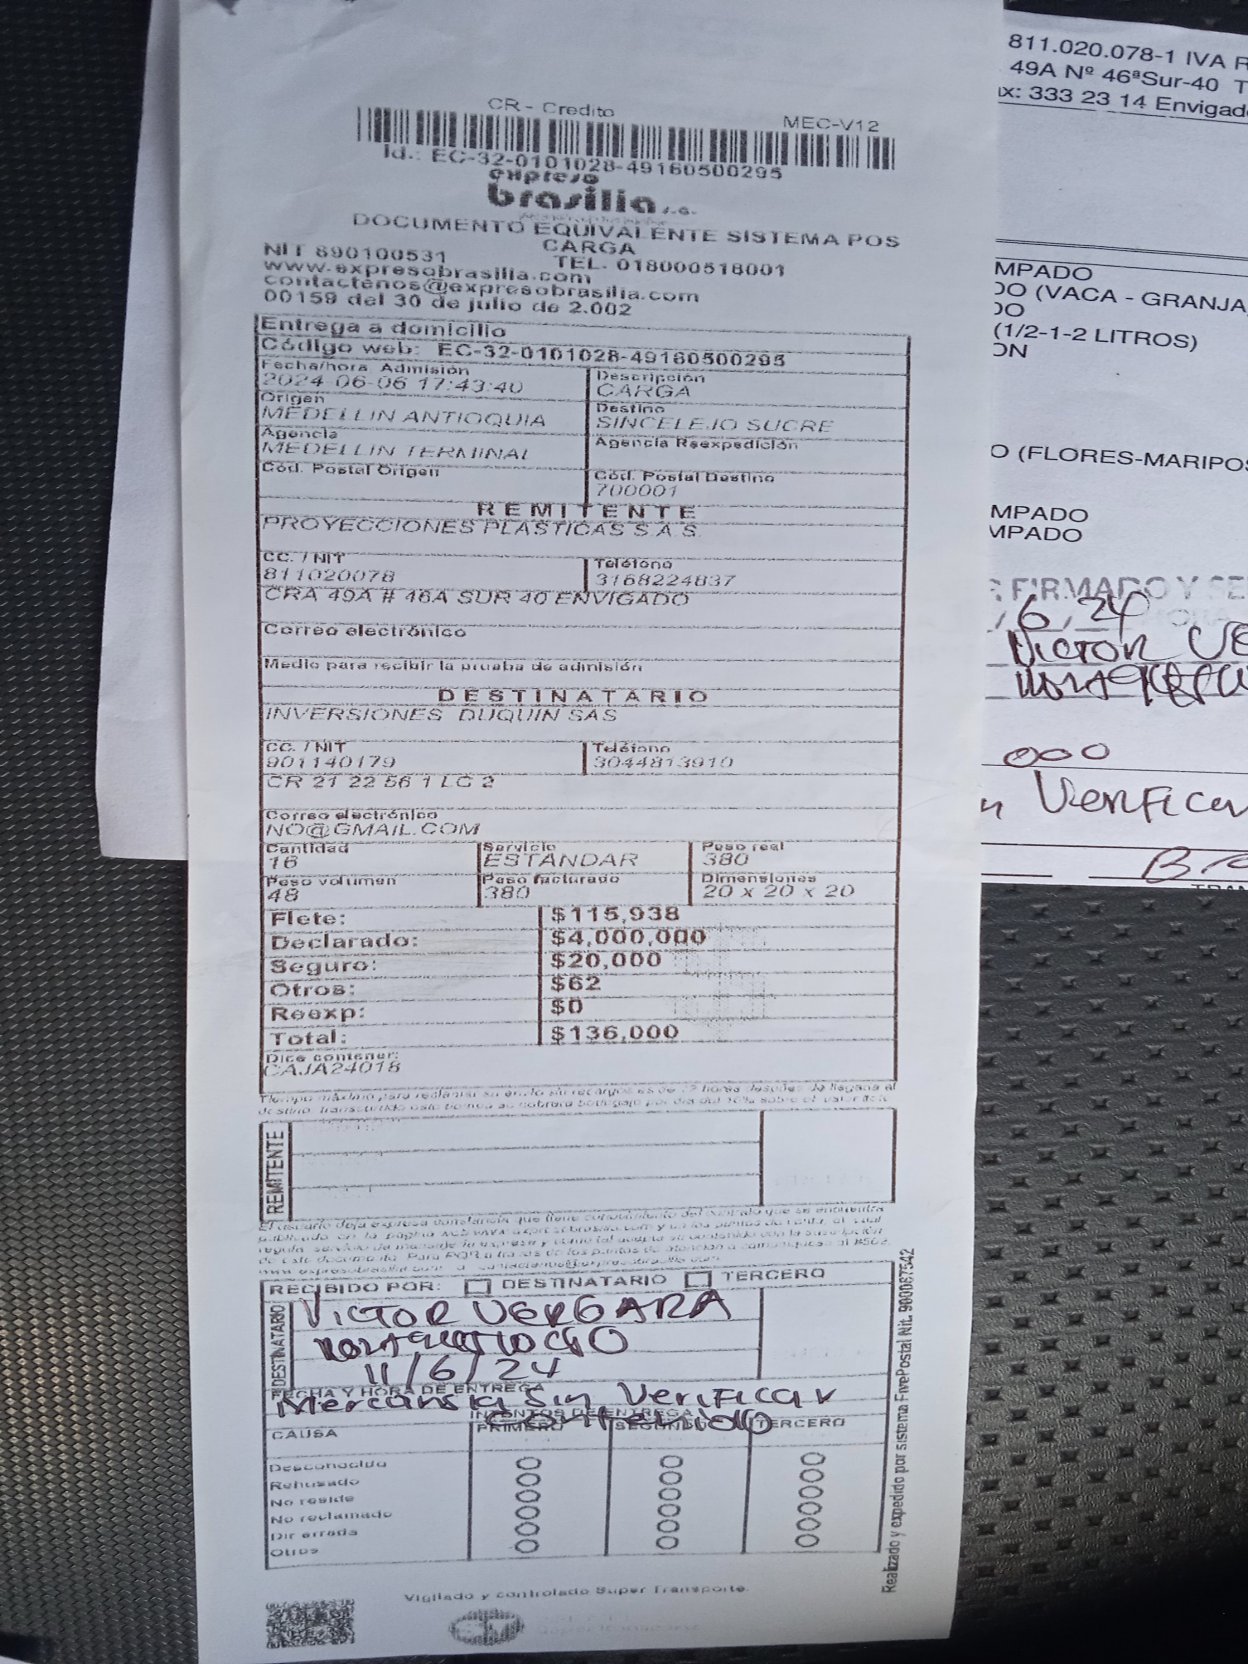 CR - Credito
MEC-V12
Id.: EC-32-0101028-49160500295
expreso
brasilia s.a.
DOCUMENTO EQUIVALENTE SISTEMA POS
CARGA
NIT 890100531 TEL. 018000518001
www.expresobrasilia.com
contactenos@expresobrasilia.com
00159 del 30 de julio de 2.002
Entrega a domicilio
Código web: EC-32-0101028-49160500295
Fecha/hora Admisión
2024-06-06 17:43:40
Descripción
CARGA
Origen
MEDELLIN ANTIOQUIA
Destino
SINCELEJO SUCRE
Agencia
MEDELLIN TERMINAL
Agencia Reexpedición
Cód. Postal Origen
Cód. Postal Destino
700001
REMITENTE
PROYECCIONES PLASTICAS S.A.S.
CC. / NIT
811020078
Teléfono
3168224837
CRA 49A # 46A SUR 40 ENVIGADO
Correo electrónico
Medio para recibir la prueba de admisión
DESTINATARIO
INVERSIONES DUQUIN SAS
CC. / NIT
901140179
Teléfono
3044813910
CR 21 22 56 1 LC 2
Correo electrónico
NO@GMAIL.COM
Cantidad
16
Servicio
ESTANDAR
Peso real
380
Peso volumen
48
Peso facturado
380
Dimensiones
20 x 20 x 20
Flete: $115,938
Declarado: $4,000,000
Seguro: $20,000
Otros: $62
Reexp: $0
Total: $136,000
Dice contener:
CAJA24018
REMITENTE
RECIBIDO POR: DESTINATARIO TERCERO
DESTINATARIO
VICTOR VERGARA
11/6/24
FECHA Y HORA DE ENTREGA
Mercansia Sin Verificar
contenido
INTENTOS DE ENTREGA
CAUSA PRIMERO SEGUNDO TERCERO
Desconocido
Rehusado
No reside
No reclamado
Dir errada
Otros
Realizado y expedido por sistema FivePostal Nit. 900087542
Vigilado y controlado Super Transporte.
811.020.078-1 IVA
49A Nº 46ªSur-40
333 23 14 Envigad
MPADO
DO (VACA - GRANJA
DO
(1/2-1-2 LITROS)
ON
O (FLORES-MARIPOS
MPADO
MPADO
FIRMADO Y SE
6/24
VICTOR VE
000
Verificar